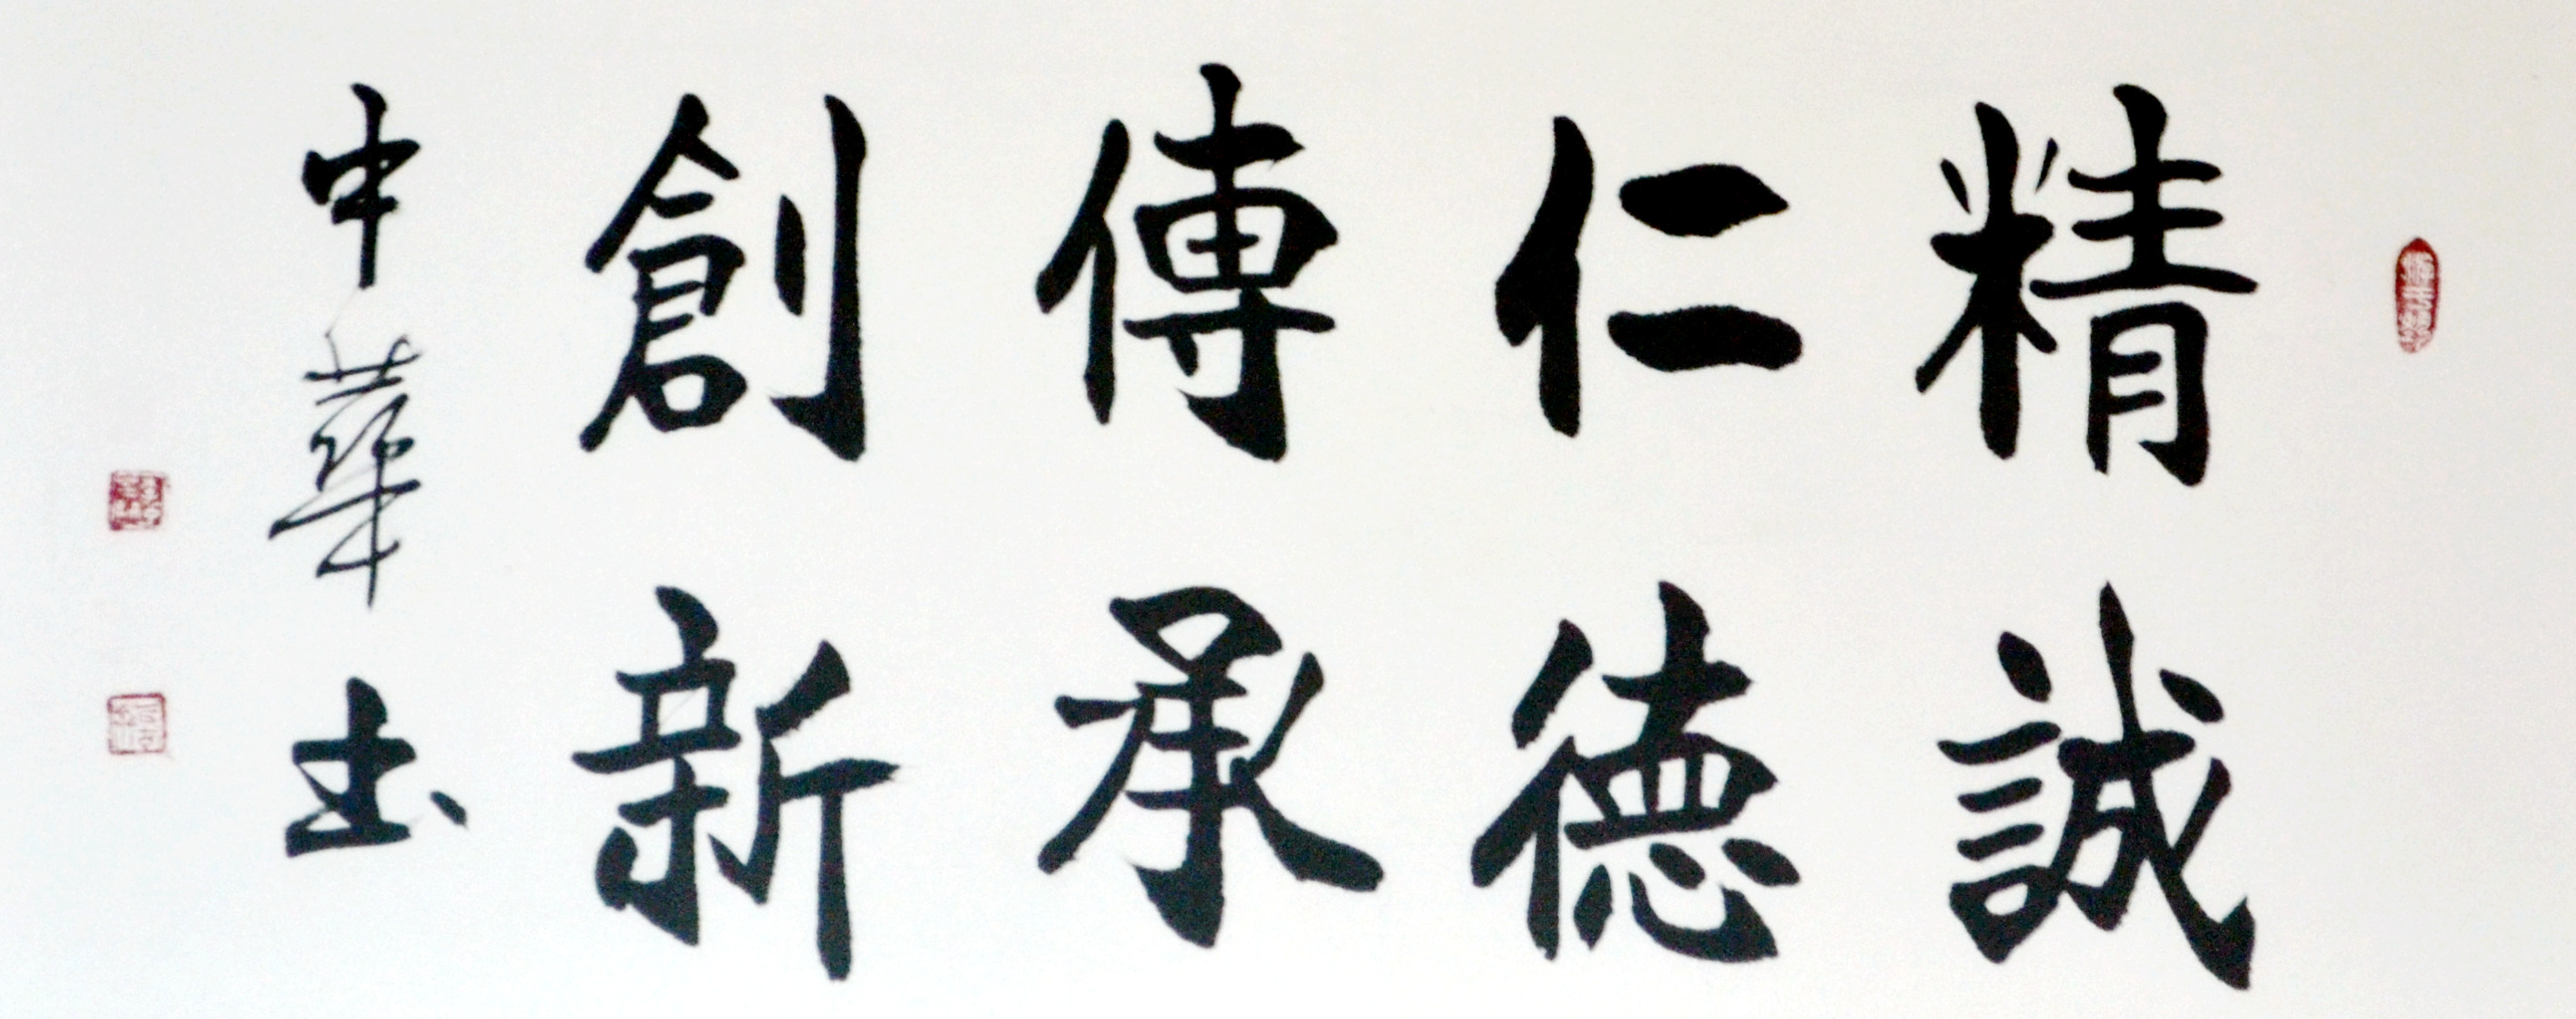 精誠
仁德
傳承
創新
中華书